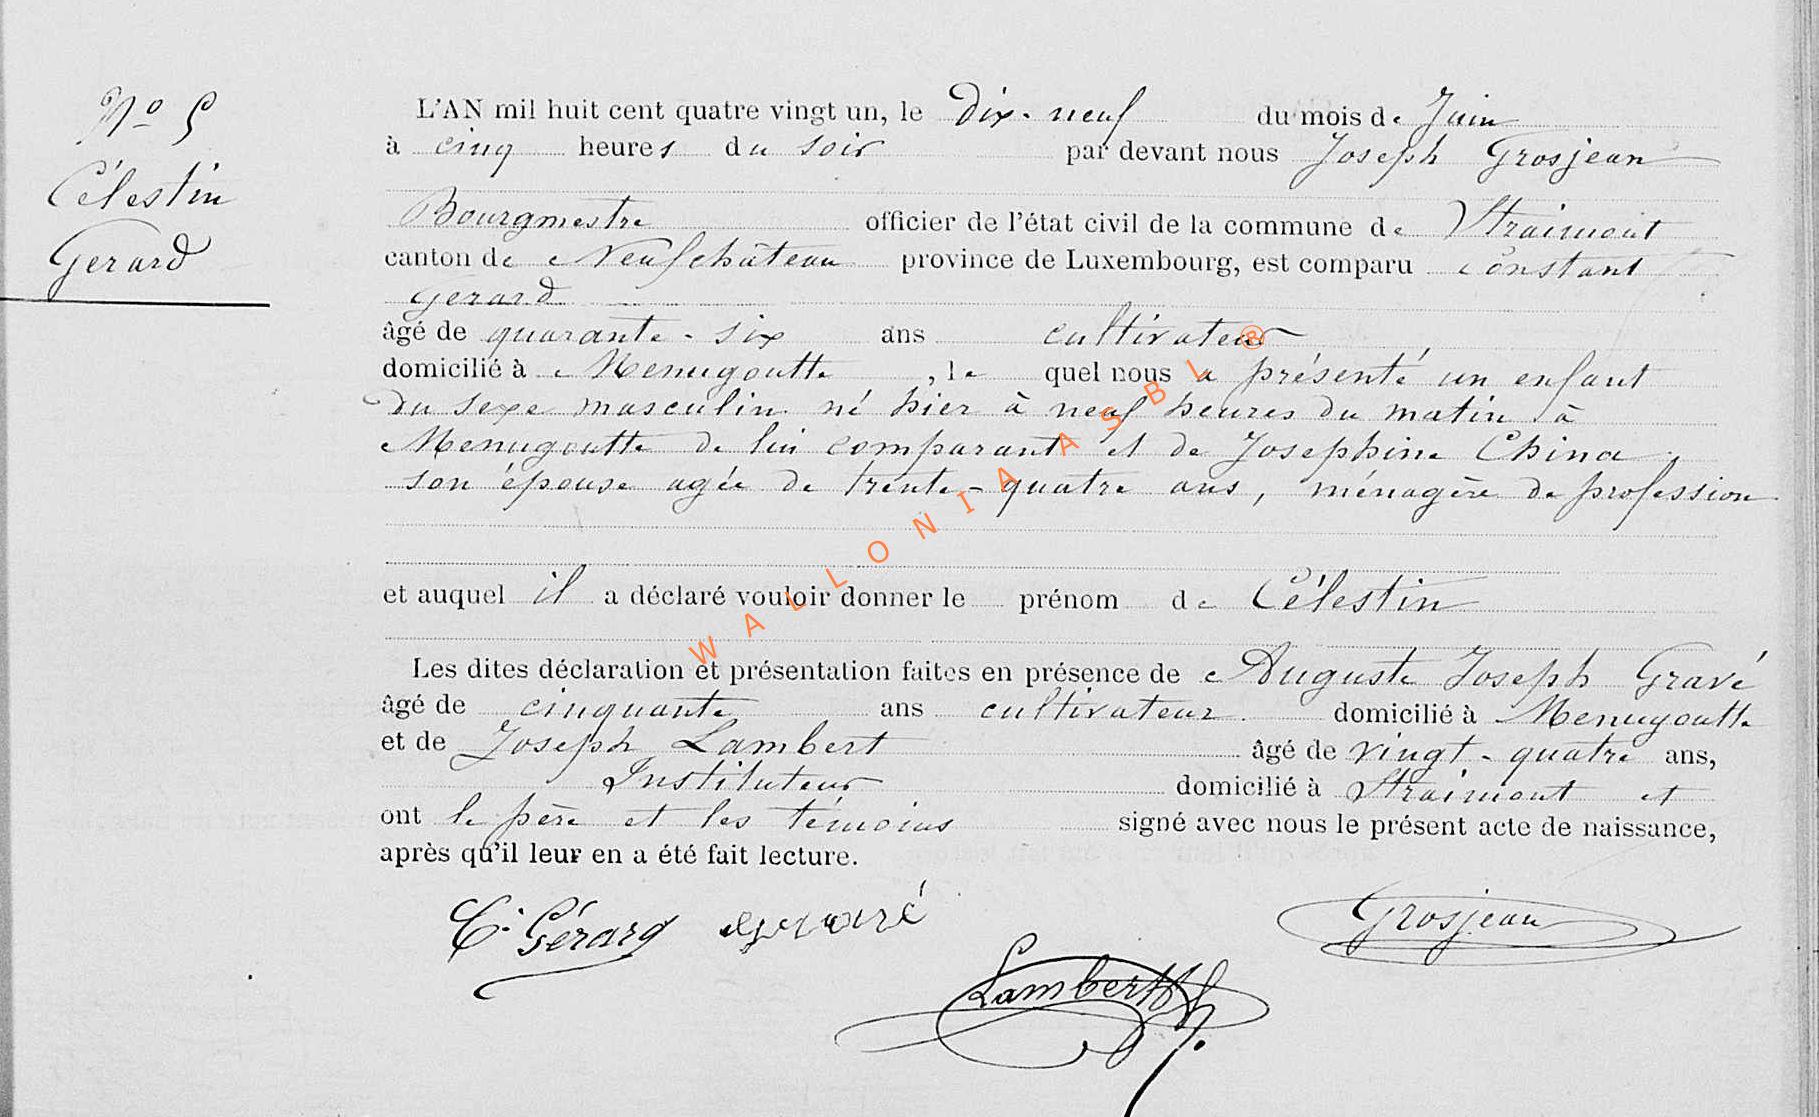 Nº 5
Célestin
Gerard
L'AN mil huit cent quatre vingt un, le dix-neuf du mois de Juin
à cinq heures du soir par devant nous Joseph Grosjean
Bourgmestre officier de l'état civil de la commune de Straimont
canton de Neufchâteau province de Luxembourg, est comparu Constant
Gerard
âgé de quarante-six ans cultivateur
domicilié à Menugoutte, le quel nous a présenté un enfant
du sexe masculin né hier à neuf heures du matin à
Menugoutte de lui comparant et de Josephine China,
son épouse agée de trente-quatre ans, ménagère de profession
et auquel il a déclaré vouloir donner le prénom de Célestin
Les dites déclaration et présentation faites en présence de Auguste Joseph Gravé
âgé de cinquante ans cultivateur domicilié à Menugoutte
et de Joseph Lambert âgé de vingt-quatre ans,
Instituteur domicilié à Straimont et
ont le père et les témoins signé avec nous le présent acte de naissance,
après qu'il leur en a été fait lecture.
C. Gérard Gravé Grosjean
Lambert J.
WALLONIA ASBL ®